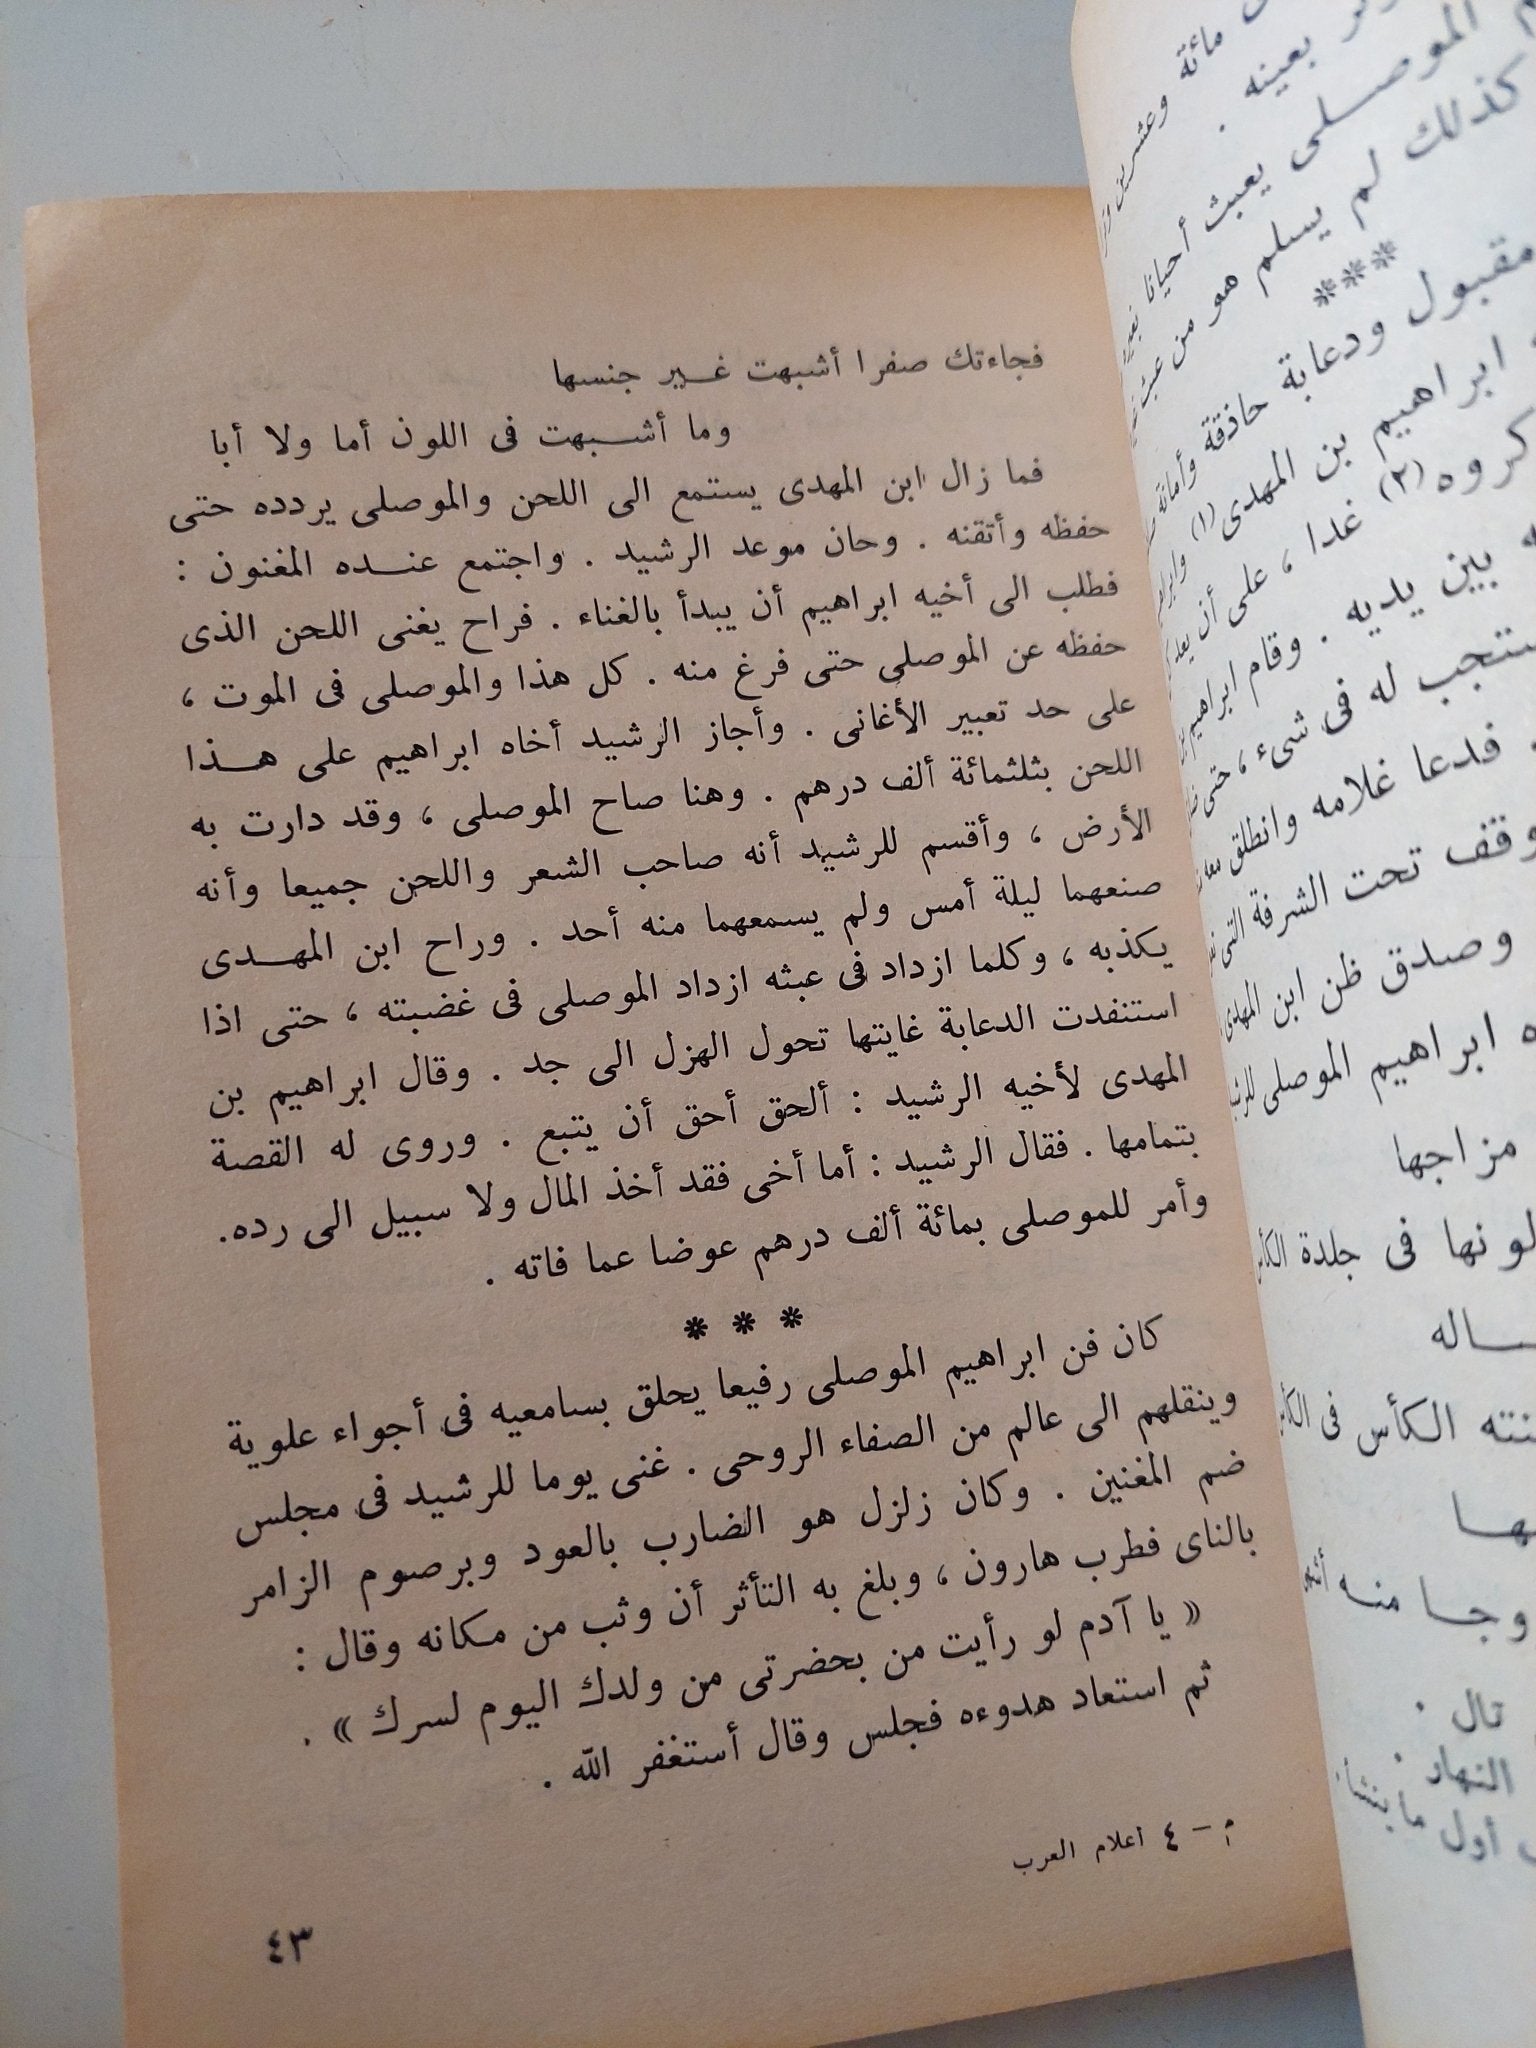 فجاءتك صفرا أشبهت غير جنسها
وما أشبهت فى اللون أما ولا أبا
فما زال ابن المهدى يستمع الى اللحن والموصلى يردده حتى
حفظه وأتقنه . وحان موعد الرشيد . واجتمع عنده المغنون :
فطلب الى أخيه ابراهيم أن يبدأ بالغناء . فراح يغنى اللحن الذى
حفظه عن الموصلى حتى فرغ منه . كل هذا والموصلى فى الموت ،
على حد تعبير الأغانى . وأجاز الرشيد أخاه ابراهيم على هذا
اللحن بثلثمائة ألف درهم . وهنا صاح الموصلى ، وقد دارت به
الأرض ، وأقسم للرشيد أنه صاحب الشعر واللحن جميعا وأنه
صنعهما ليلة أمس ولم يسمعهما منه أحد . وراح ابن المهدى
يكذبه ، وكلما ازداد فى عبثه ازداد الموصلى فى غضبته ، حتى اذا
استنفدت الدعابة غايتها تحول الهزل الى جد . وقال ابراهيم بن
المهدى لأخيه الرشيد : ألحق أحق أن يتبع . وروى له القصة
بتمامها . فقال الرشيد : أما أخى فقد أخذ المال ولا سبيل الى رده.
وأمر للموصلى بمائة ألف درهم عوضا عما فاته .
* * *
كان فن ابراهيم الموصلى رفيعا يحلق بسامعيه فى أجواء علوية
وينقلهم الى عالم من الصفاء الروحى . غنى يوما للرشيد فى مجلس
ضم المغنين . وكان زلزل هو الضارب بالعود وبرصوم الزامر
بالناى فطرب هارون ، وبلغ به التأثر أن وثب من مكانه وقال :
« يا آدم لو رأيت من بحضرتى من ولدك اليوم لسرك » .
ثم استعاد هدوءه فجلس وقال أستغفر الله .
م - ٤ أعلام العرب
٤٣
مائة وعشرين
بعينه .
الموصلى يعبث أحيانا
كذلك لم يسلم هو من عبث
***
مقبول ودعابة حاذقة وأمانة
ابراهيم بن المهدى (١)
كروه (٢) غدا ، على أن
بين يديه . وقام ابراهيم
له فى شىء ، حتى
فدعا غلامه وانطلق
تحت الشرفة التى
وصدق ظن ابن المهدى
ابراهيم الموصلى
مزاجها
لونها فى جلدة
الكأس فى
منه
النهار .
أول